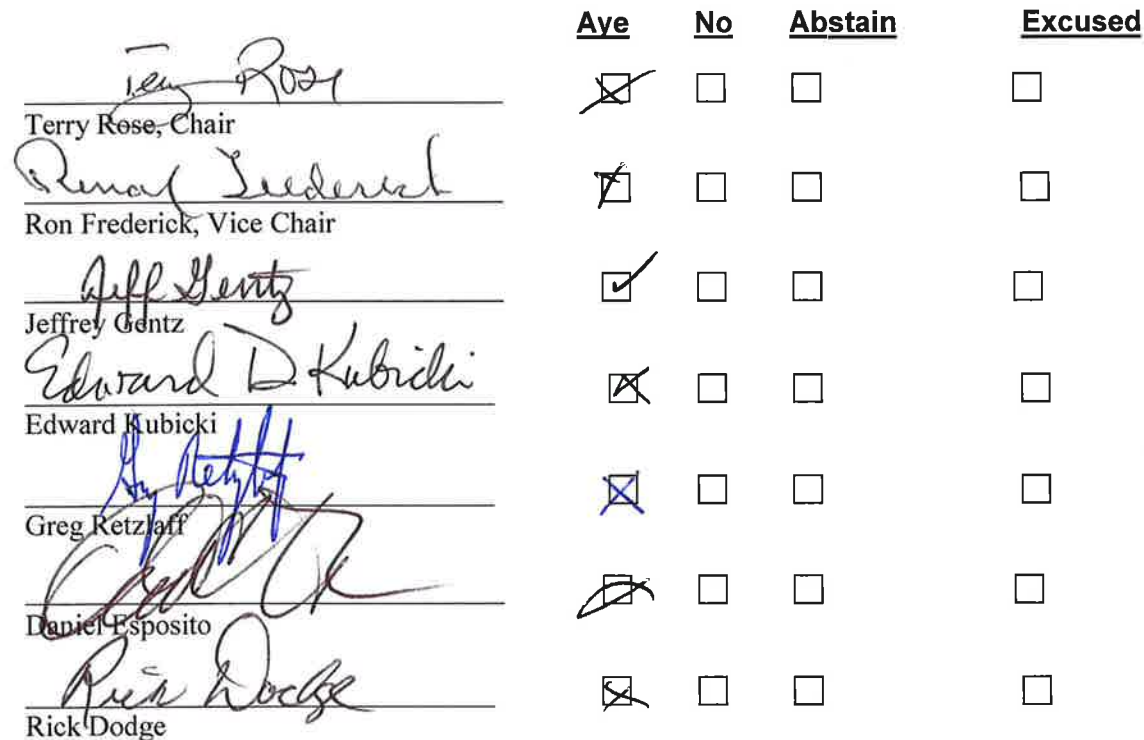 Aye No Abstain Excused
Terry Rose
Terry Rose, Chair
Frederick
Ron Frederick, Vice Chair
Jeff Gentz
Jeffrey Gentz
Edward D. Kubicki
Edward Kubicki
Greg Retzlaff
Daniel Esposito
Rick Dodge
Rick Dodge